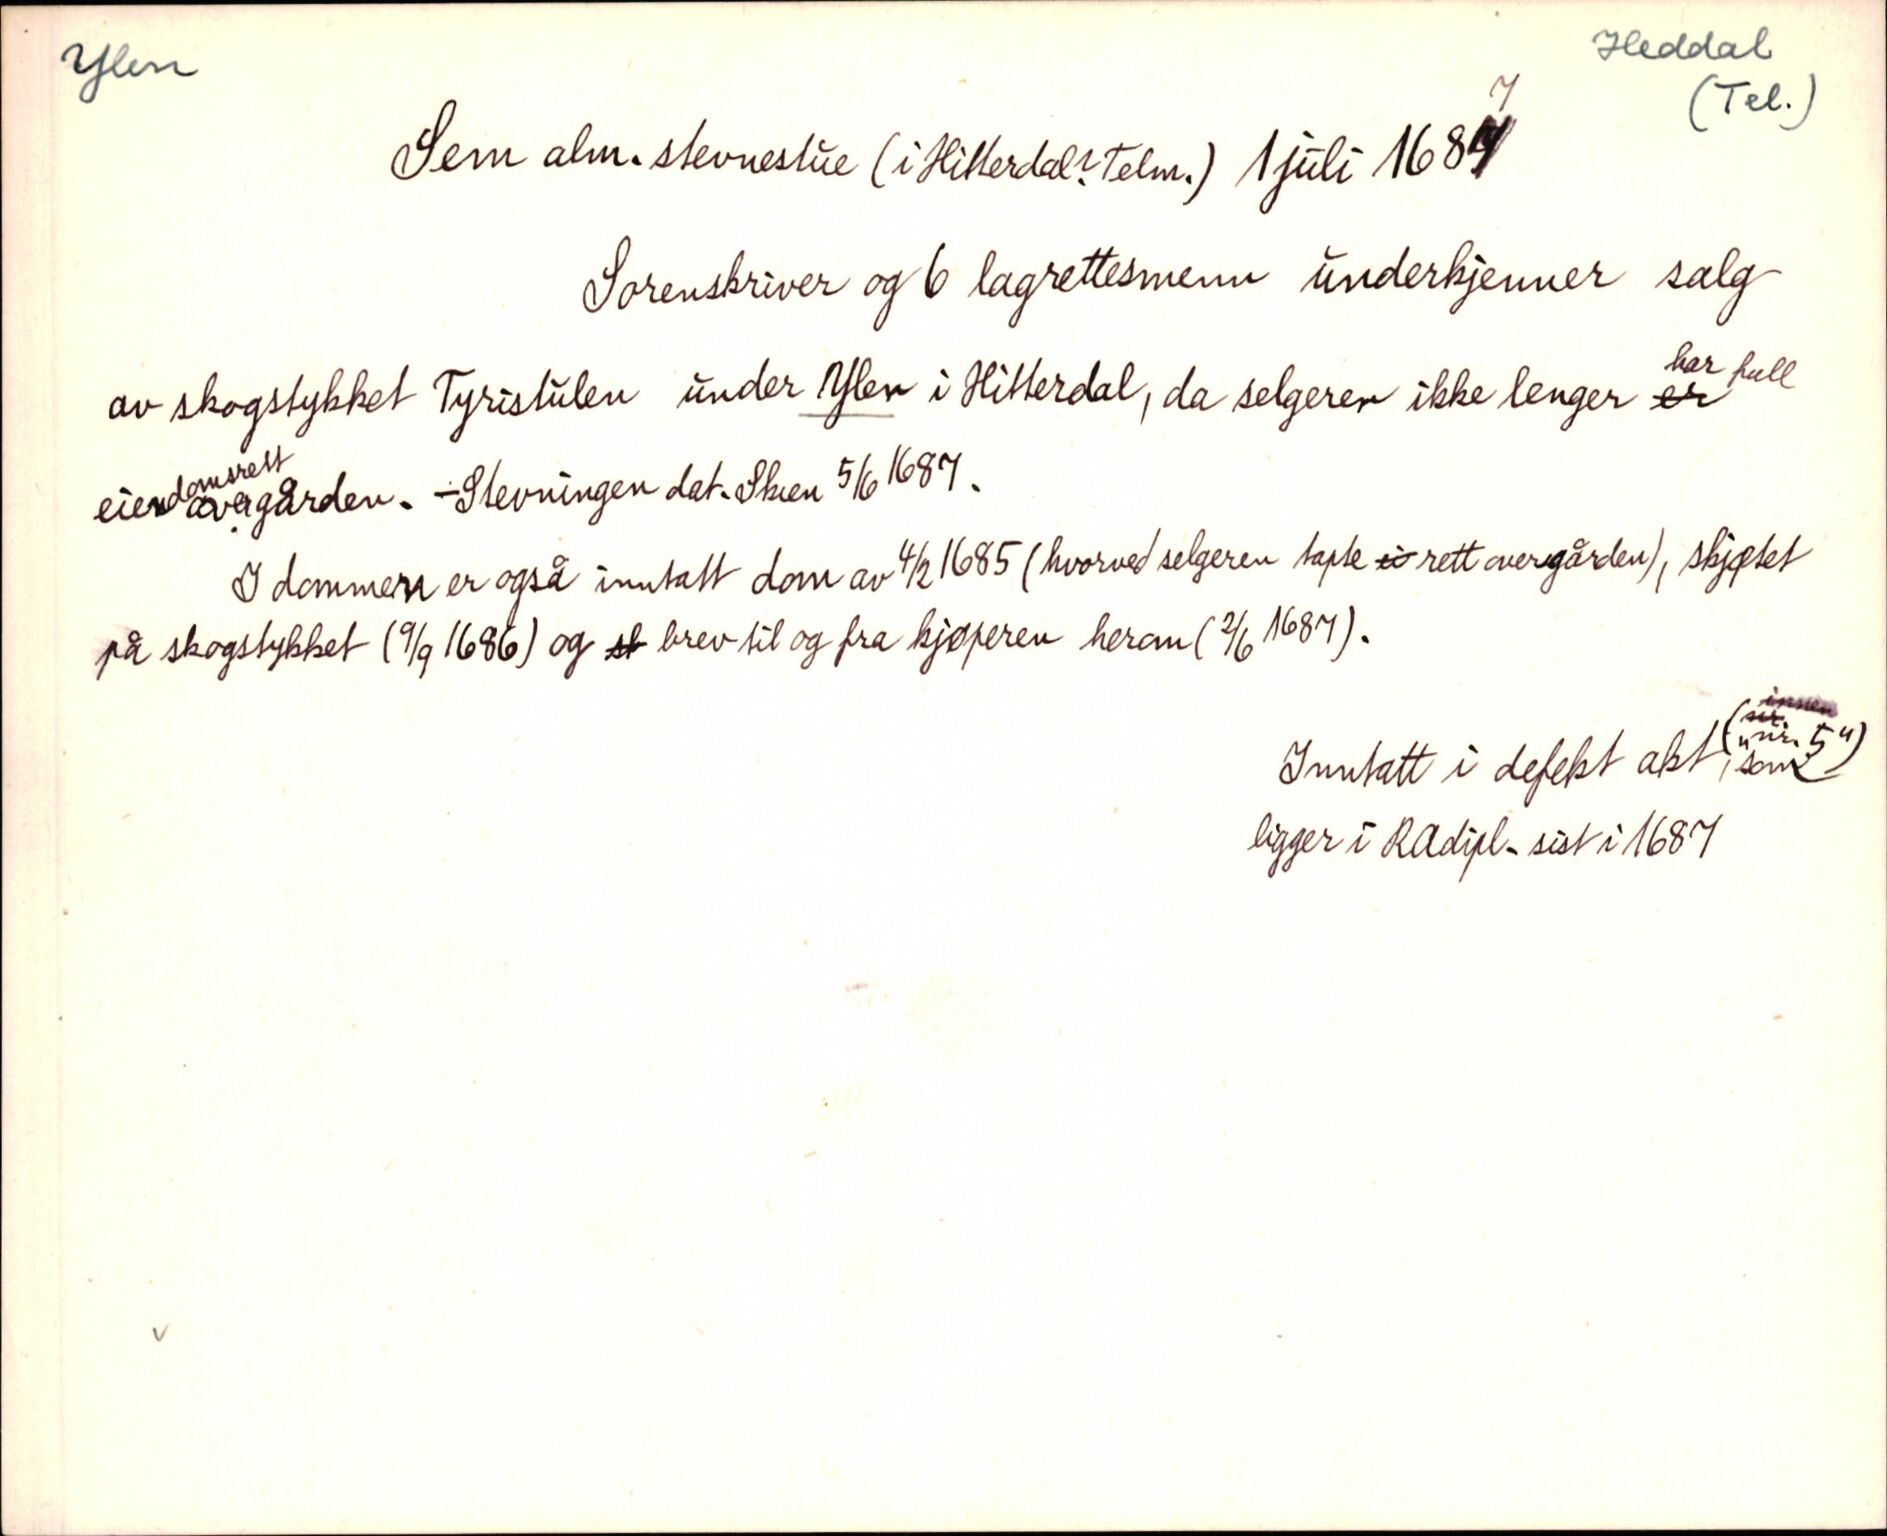 Ylen
Heddal
(Tel.)
Sem alm. stevnestue (i Hitterdal? Telm.) 1 juli 1687
Sorenskriver og 6 lagrettesmenn underkjenner salg
av skogstykket Tyristulen under Ylen i Hitterdal, da selgeren ikke lenger ~~er~~ har full
eiendomsrett over gården. - Stevningen dat. Skien 5/6 1687.
I dommen er også inntatt dom av 4/2 1685 (hvorved selgeren tapte ~~ei~~ rett over gården), skjøtet
på skogstykket (9/9 1686) og ~~st~~ brev til og fra kjøperen herom (2/6 1687).
Inntatt i defekt akt ("nr. 5"), som
ligger i RAdipl. sist i 1687
v